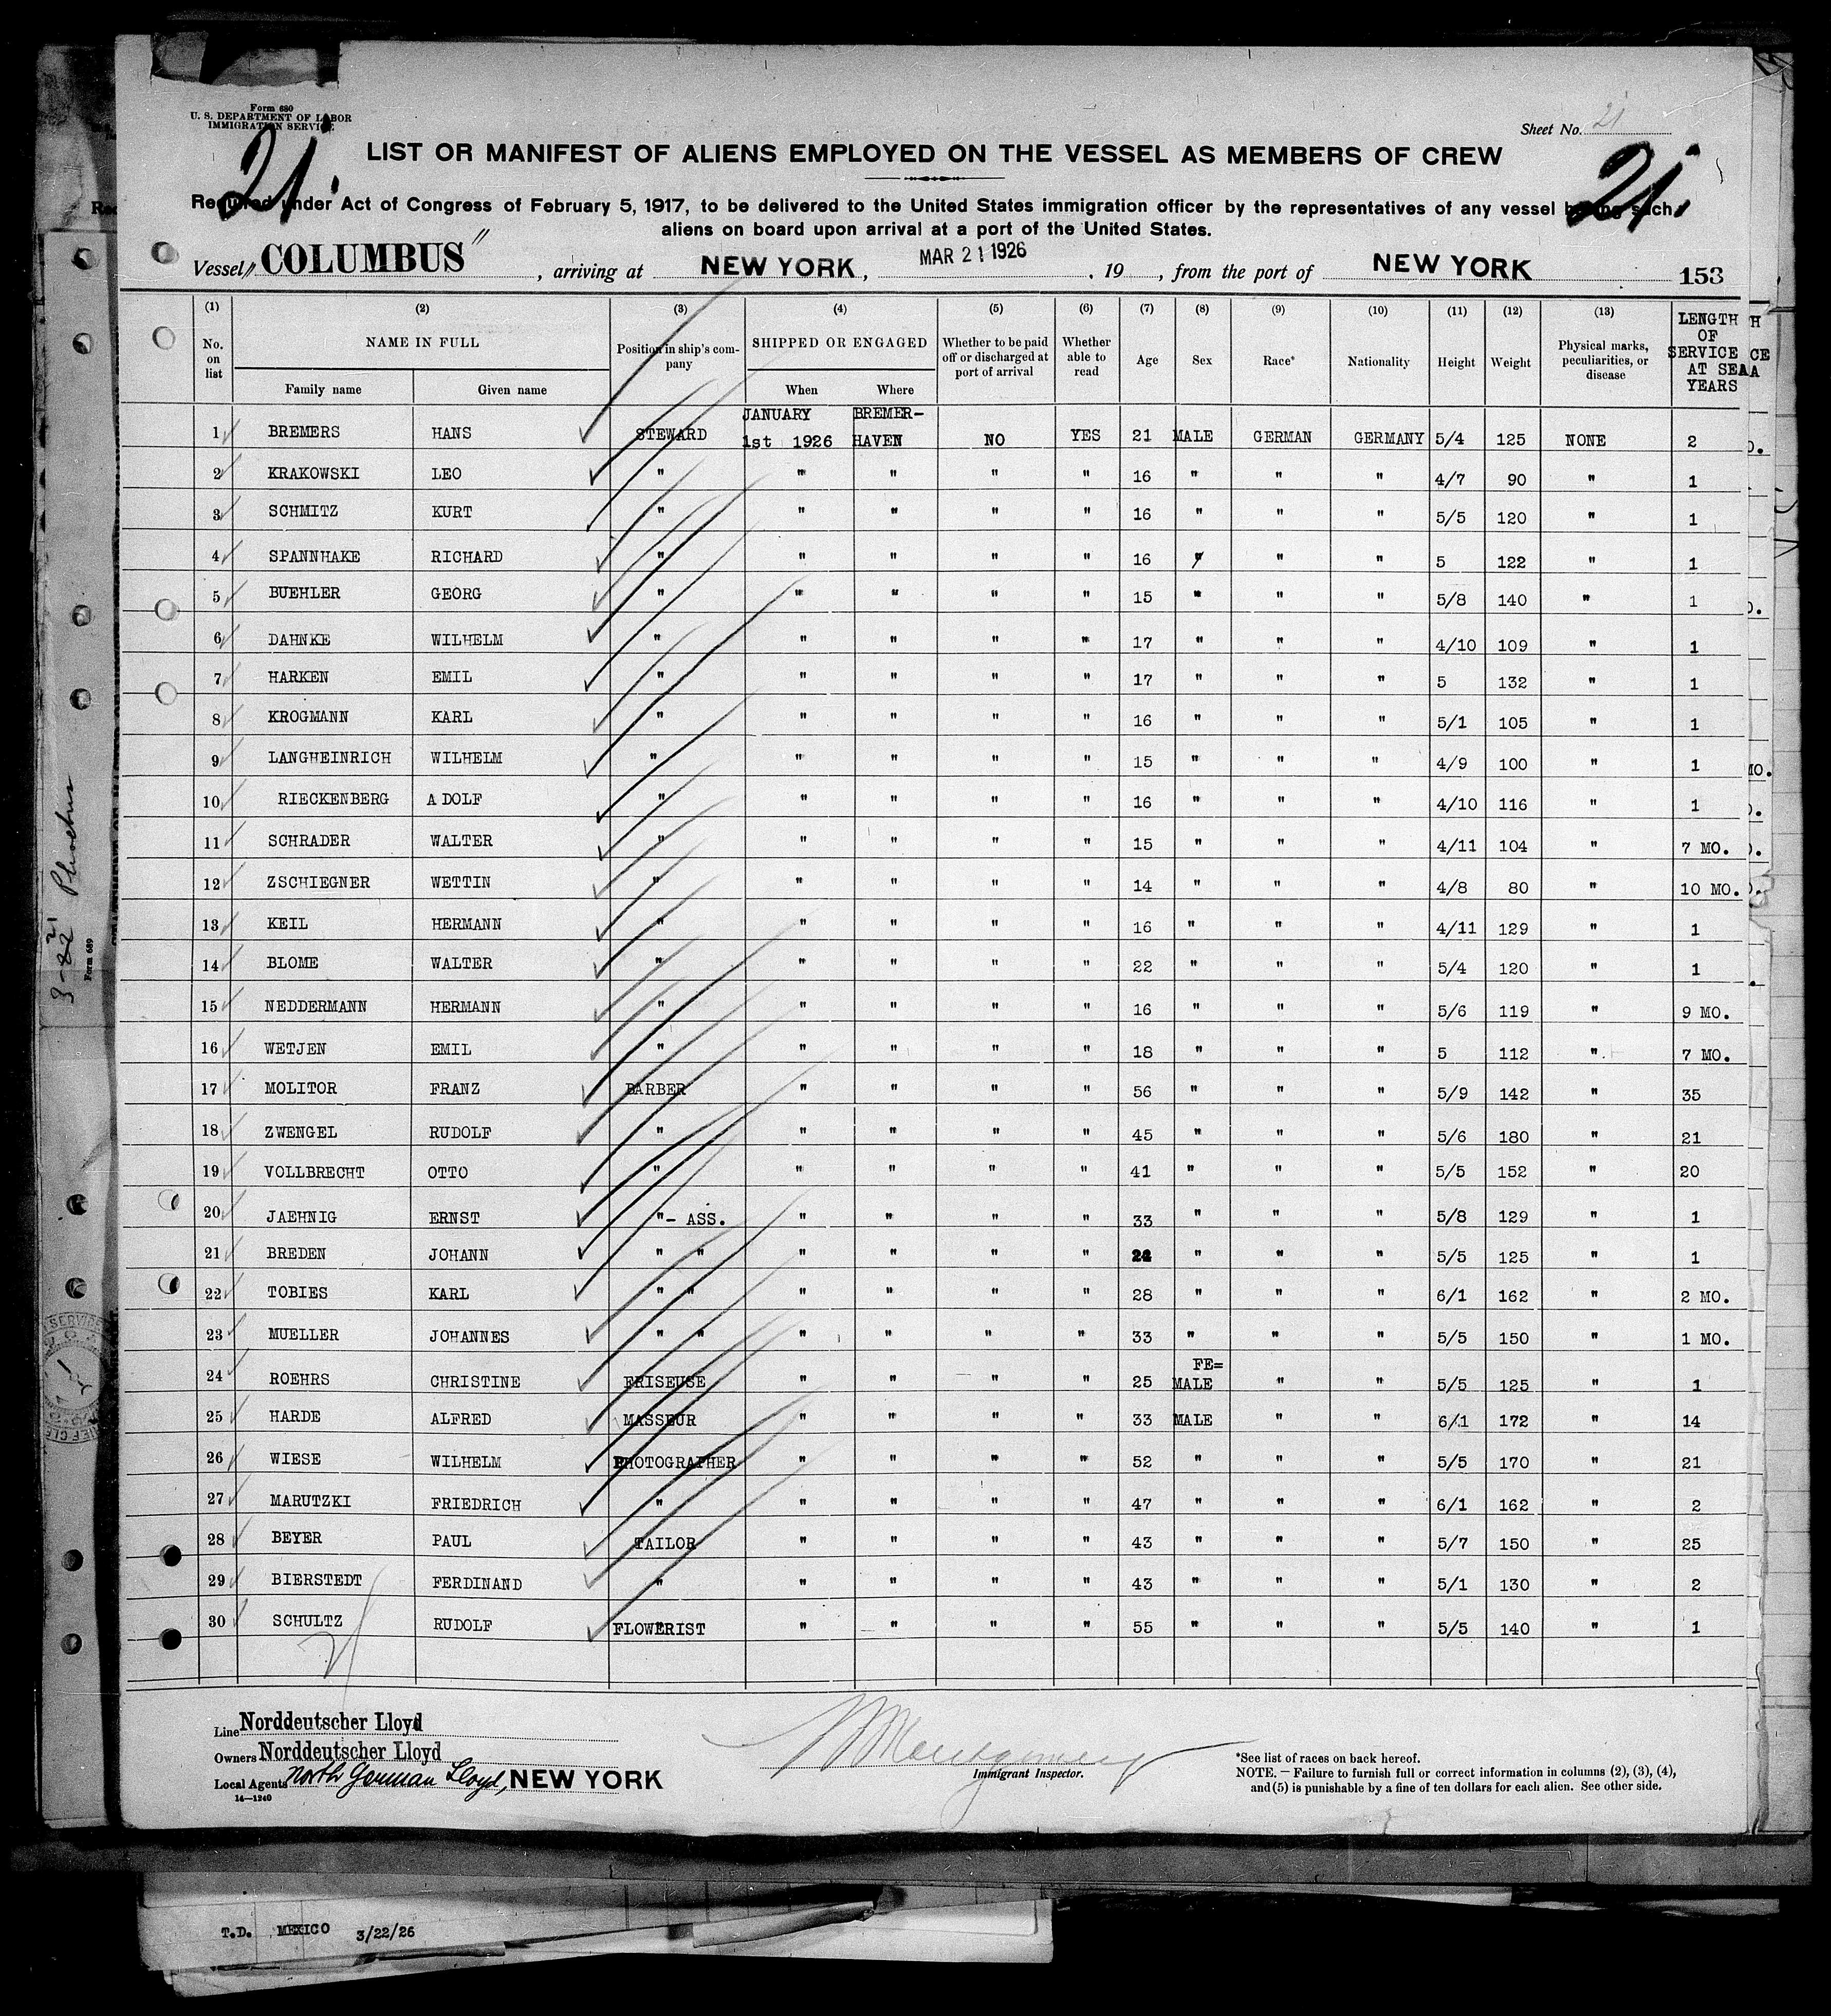 Form 680
U. S. DEPARTMENT OF LABOR
IMMIGRATION SERVICE
Sheet No. 21
21.
21.
LIST OR MANIFEST OF ALIENS EMPLOYED ON THE VESSEL AS MEMBERS OF CREW
Required under Act of Congress of February 5, 1917, to be delivered to the United States immigration officer by the representatives of any vessel having such
aliens on board upon arrival at a port of the United States.
Vessel "COLUMBUS", arriving at NEW YORK, MAR 21 1926, 19 , from the port of NEW YORK 153
(1) (2) (3) (4) (5) (6) (7) (8) (9) (10) (11) (12) (13)
No. on list NAME IN FULL Family name Given name Position in ship's company SHIPPED OR ENGAGED When Where Whether to be paid off or discharged at port of arrival Whether able to read Age Sex Race* Nationality Height Weight Physical marks, peculiarities, or disease LENGTH OF SERVICE AT SEA YEARS
1 BREMERS HANS STEWARD JANUARY 1st 1926 BREMER-HAVEN NO YES 21 MALE GERMAN GERMANY 5/4 125 NONE 2
2 KRAKOWSKI LEO " " " " " 16 " " " 4/7 90 " 1
3 SCHMITZ KURT " " " " " 16 " " " 5/5 120 " 1
4 SPANNHAKE RICHARD " " " " " 16 " " " 5 122 " 1
5 BUEHLER GEORG " " " " " 15 " " " 5/8 140 " 1
6 DAHNKE WILHELM " " " " " 17 " " " 4/10 109 " 1
7 HARKEN EMIL " " " " " 17 " " " 5 132 " 1
8 KROGMANN KARL " " " " " 16 " " " 5/1 105 " 1
9 LANGHEINRICH WILHELM " " " " " 15 " " " 4/9 100 " 1
10 RIECKENBERG A DOLF " " " " " 16 " " " 4/10 116 " 1
11 SCHRADER WALTER " " " " " 15 " " " 4/11 104 " 7 MO.
12 ZSCHIEGNER WETTIN " " " " " 14 " " " 4/8 80 " 10 MO.
13 KEIL HERMANN " " " " " 16 " " " 4/11 129 " 1
14 BLOME WALTER " " " " " 22 " " " 5/4 120 " 1
15 NEDDERMANN HERMANN " " " " " 16 " " " 5/6 119 " 9 MO.
16 WETJEN EMIL " " " " " 18 " " " 5 112 " 7 MO.
17 MOLITOR FRANZ BARBER " " " " 56 " " " 5/9 142 " 35
18 ZWENGEL RUDOLF " " " " " 45 " " " 5/6 180 " 21
19 VOLLBRECHT OTTO " " " " " 41 " " " 5/5 152 " 20
20 JAEHNIG ERNST "- ASS. " " " " 33 " " " 5/8 129 " 1
21 BREDEN JOHANN " " " " " " 24 " " " 5/5 125 " 1
22 TOBIES KARL " " " " " " 28 " " " 6/1 162 " 2 MO.
23 MUELLER JOHANNES " " " " " " 33 " " " 5/5 150 " 1 MO.
24 ROEHRS CHRISTINE FRISEUSE " " " " 25 FE=MALE " " 5/5 125 " 1
25 HARDE ALFRED MASSEUR " " " " 33 MALE " " 6/1 172 " 14
26 WIESE WILHELM PHOTOGRAPHER " " " " 52 " " " 5/5 170 " 21
27 MARUTZKI FRIEDRICH " " " " " 47 " " " 6/1 162 " 2
28 BEYER PAUL TAILOR " " " " 43 " " " 5/7 150 " 25
29 BIERSTEDT FERDINAND " " " " " 43 " " " 5/1 130 " 2
30 SCHULTZ RUDOLF FLOWERIST " " " " 55 " " " 5/5 140 " 1
Line Norddeutscher Lloyd
Owners Norddeutscher Lloyd
Local Agents North German Lloyd, NEW YORK
14—1240
Montgomery
Immigrant Inspector.
*See list of races on back hereof.
NOTE.—Failure to furnish full or correct information in columns (2), (3), (4),
and (5) is punishable by a fine of ten dollars for each alien. See other side.
Form 689
T.D. MEXICO 3/22/26